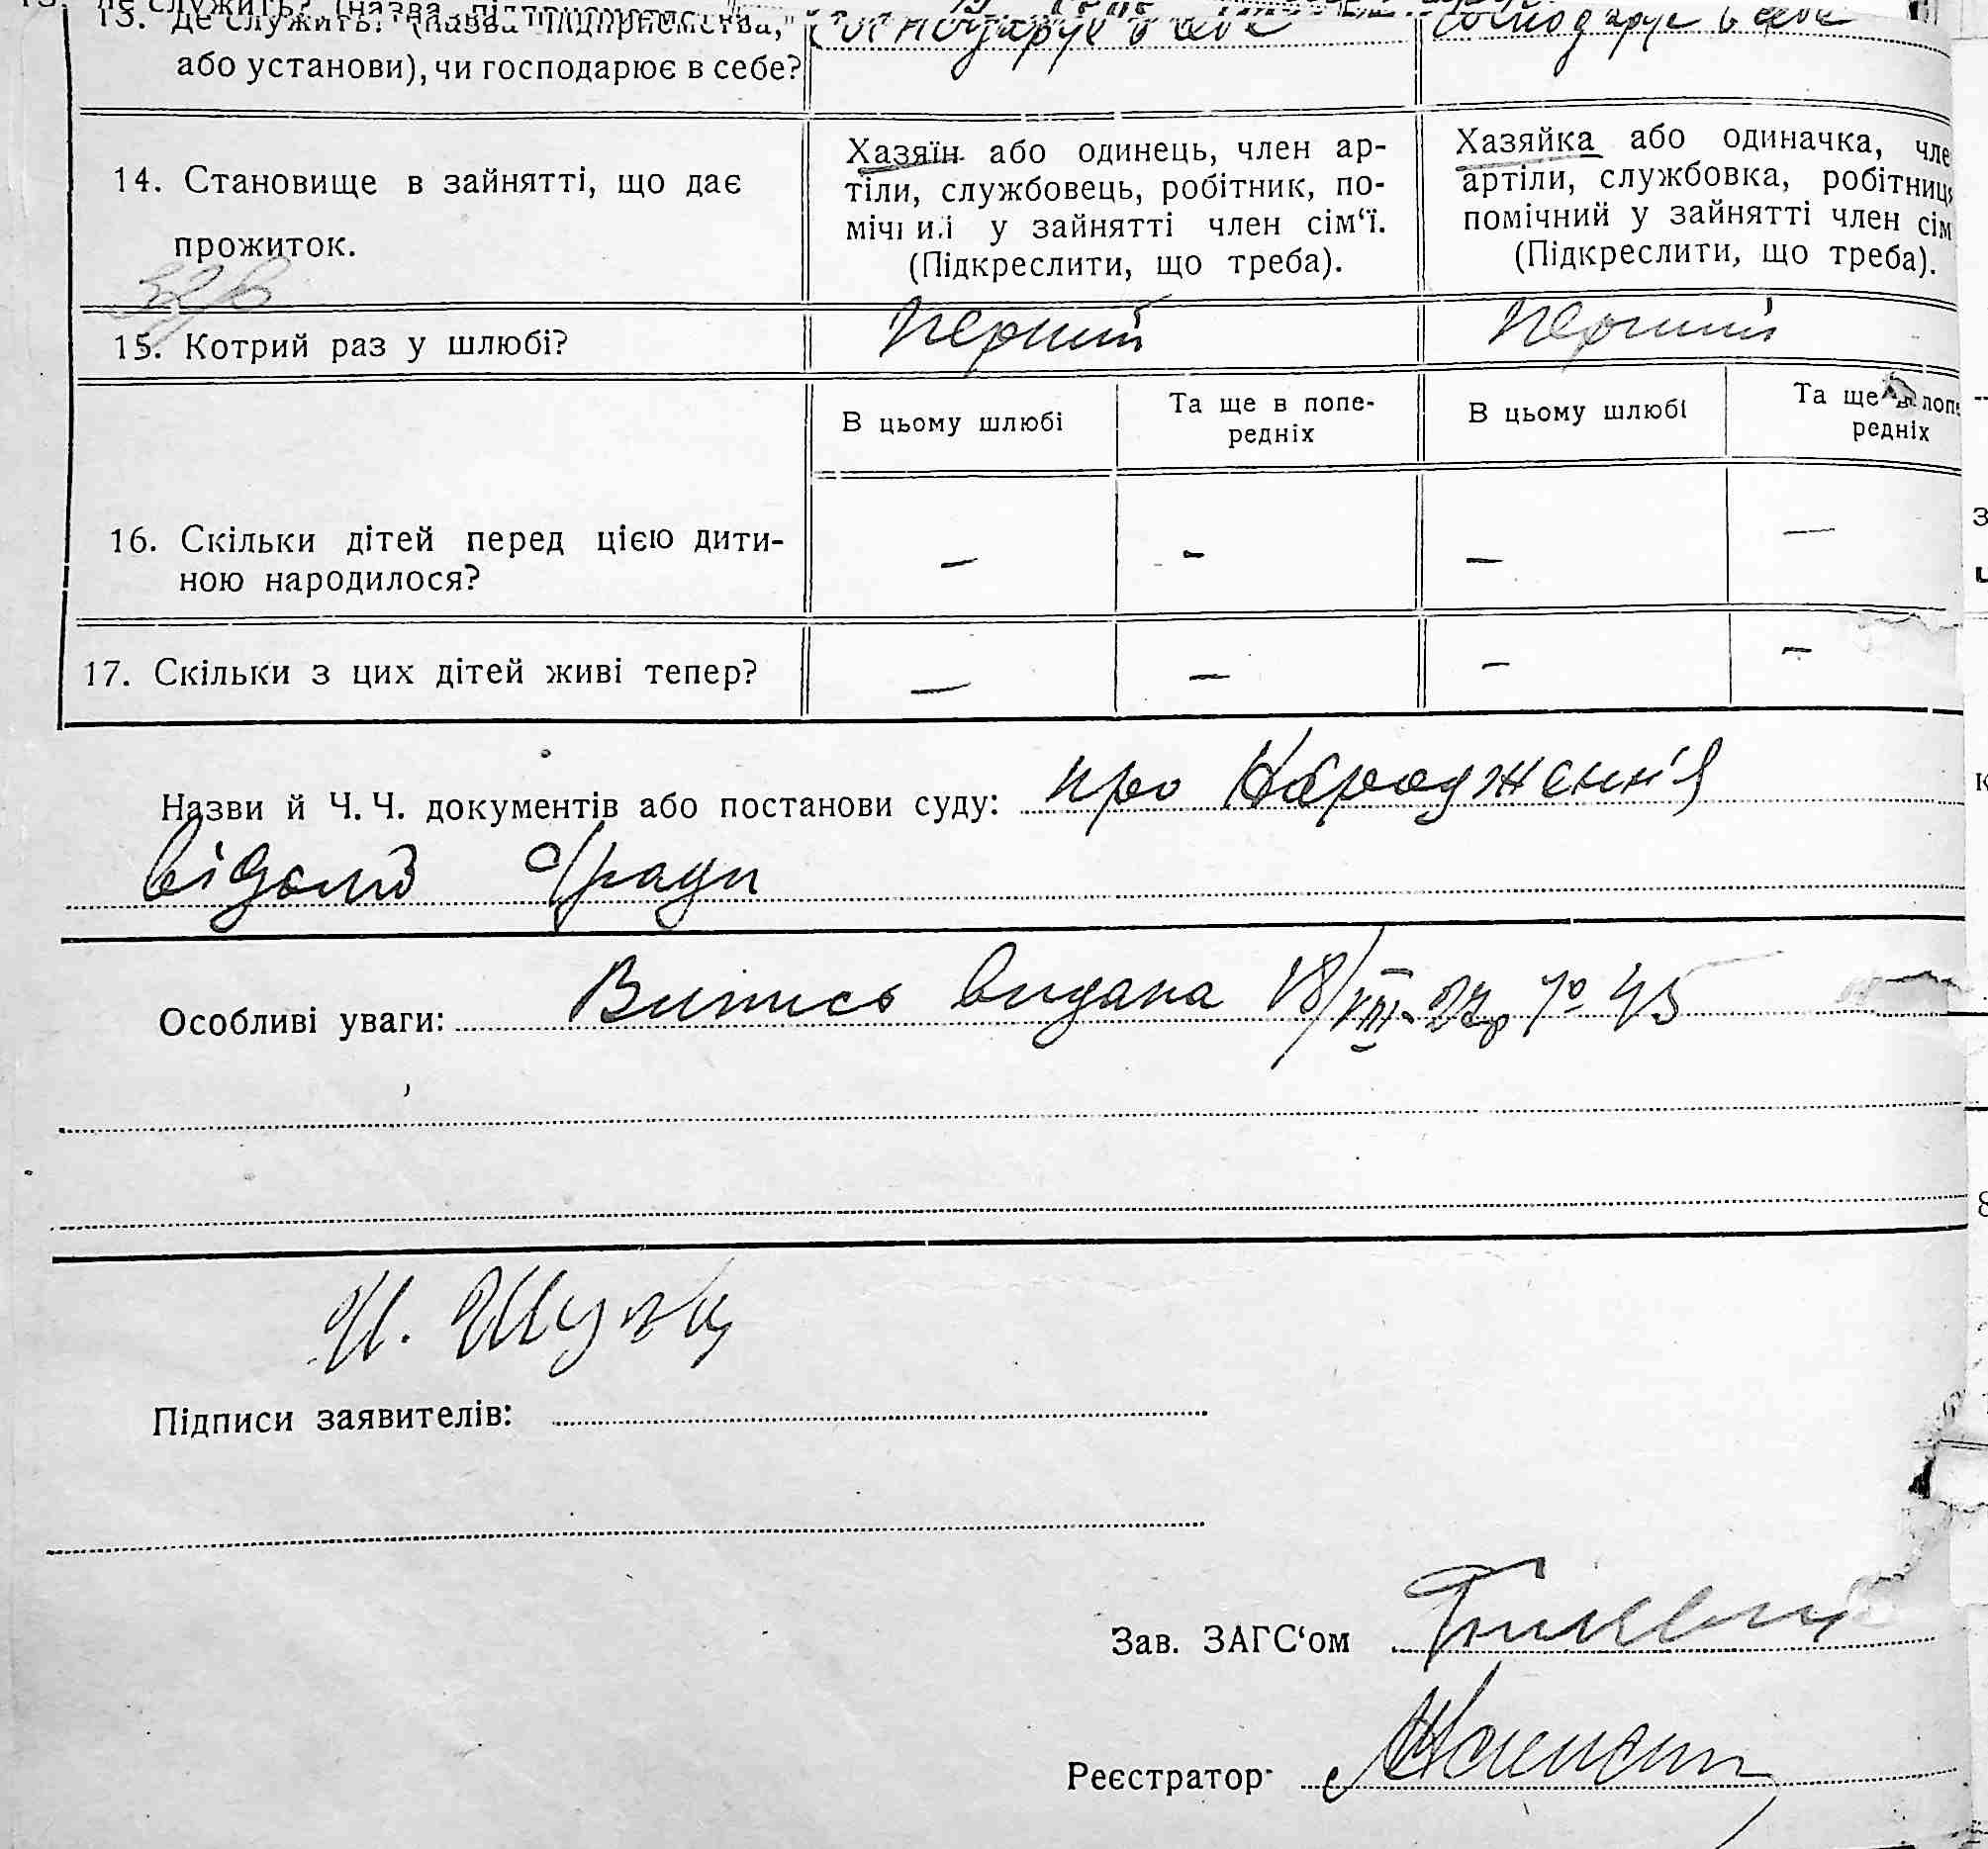 13. Де служить? (назва підприємства, господарує в себе господарує в себе
або установи), чи господарює в себе?
14. Становище в зайнятті, що дає
прожиток.
Хазяїн або одинець, член ар-
тіли, службовець, робітник, по-
мічний у зайнятті член сім‘ї.
(Підкреслити, що треба).
Хазяйка або одиначка, чле
артіли, службовка, робітниця
помічний у зайнятті член сім
(Підкреслити, що треба).
15. Котрий раз у шлюбі? Перший Перший
В цьому шлюбі
Та ще в попе-
редніх
В цьому шлюбі
Та ще в попе
редніх
16. Скільки дітей перед цією дити-
ною народилося? — - — —
17. Скільки з цих дітей живі тепер? — — — —
Назви й Ч. Ч. документів або постанови суду: про Народження
відом
Особливі уваги: Випись видана 18/VIII-27р № 45
Підписи заявителів:
Зав. ЗАГС‘ом
Реєстратор